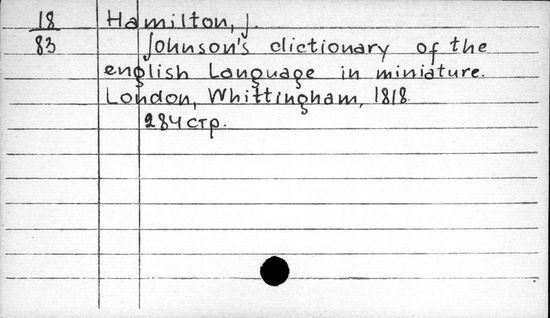 18 Hamilton, J.
83 Johnson's dictionary of the
english Language in miniature.
London, Whittingham, 1818.
284 стр.